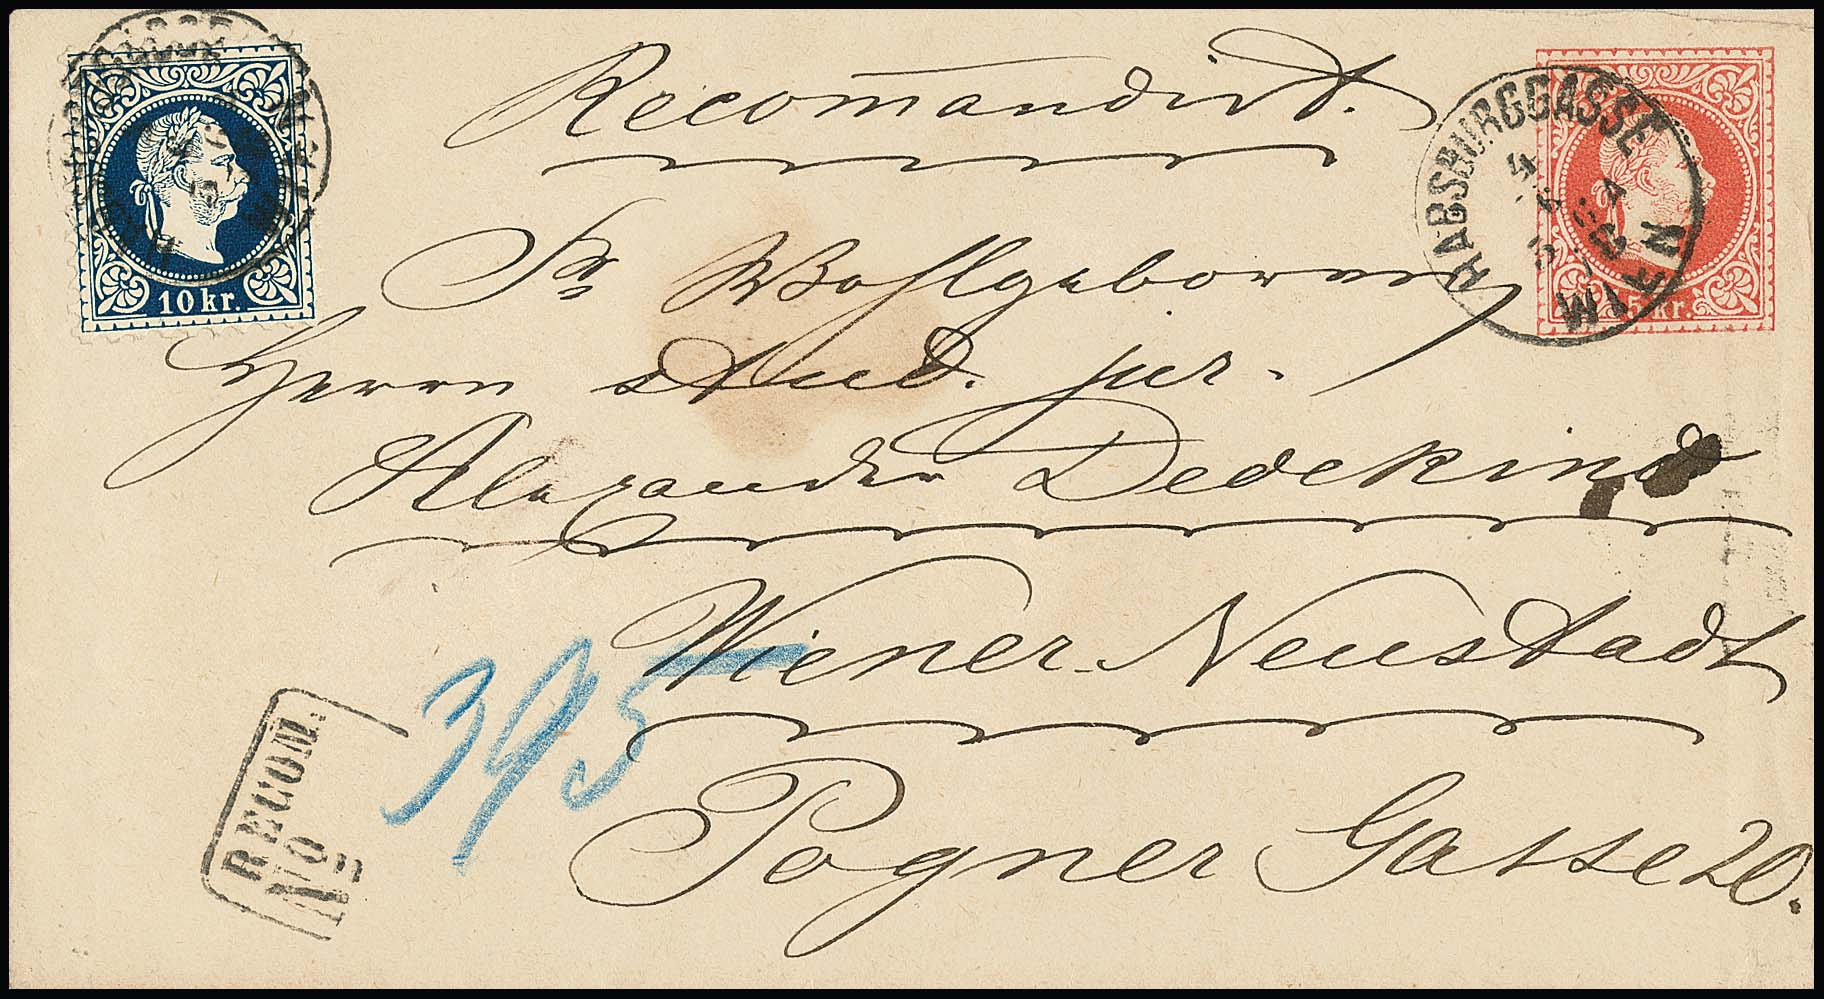 Recomandirt.
10 kr.
HABSBURGGASSE
WIEN
5 kr.
Sr Wohlgeboren
Herrn stud. jur.
Alexander Dedekind
Wiener-Neustadt
395
RECOM.
No
Pogner Gasse 20.